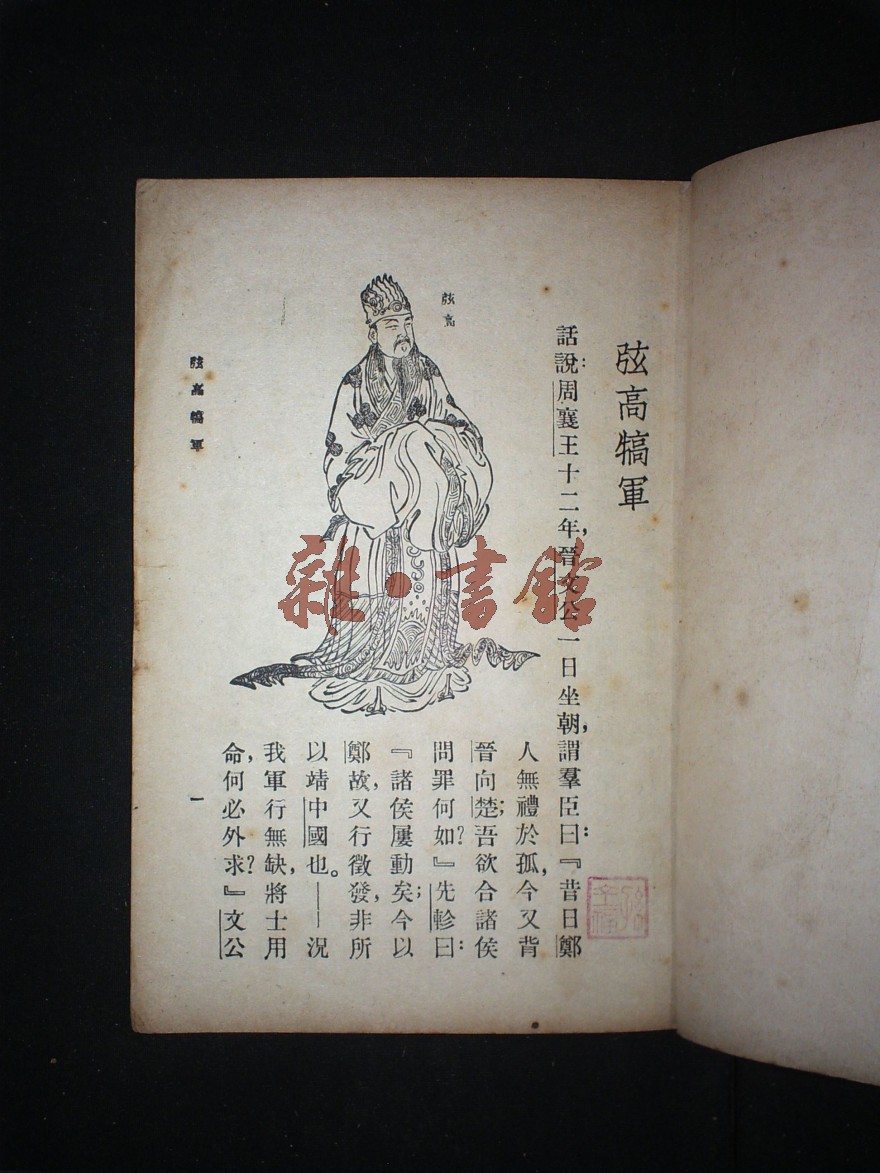 弦高犒軍
話說：周襄王十二年，晉文公一日坐朝，謂羣臣曰：『昔日鄭
人無禮於孤，今又背
晉向楚；吾欲合諸侯
問罪何如？』先軫曰：
『諸侯屢動矣；今以
鄭故，又行徵發，非所
以靖中國也。——況
我軍行無缺，將士用
命，何必外求？』文公
弦高
弦高犒軍
一
雜·書館